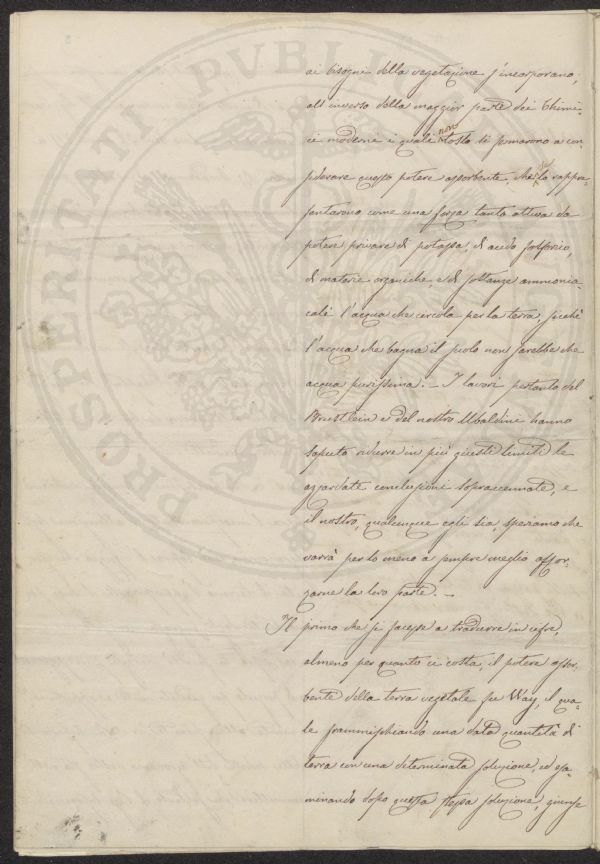 PROSPERITATI PVBLI
ai bisogni della vegetazione s'incorporano,
all'inverso della maggior parte dei Chimi-
ci moderni i quali non tosto si fermarono a con-
siderare questo potere assorbente, che lo rappre-
sentarono come una forza tanto attiva da
potere privare di potassa, di acido fosforico,
di materie organiche, e di sostanze ammonia-
cali l'acqua che circola per la terra, sicchè
l'acqua che bagna il suolo non sarebbe che
acqua purissima. — I lavori pertanto del
Brustlein e del nostro Ubaldini hanno
saputo ridurre in più giusti limiti le
azzardate conclusioni sopraccennate, e
il nostro, qualunque egli sia, speriamo che
varrà per lo meno a sempre meglio
la loro parte. —
Il primo che si facesse a tradurre in cifre,
almeno per quanto ci costa, il potere assor-
bente della terra vegetale fu Way, il qua-
le frammischiando una data quantità di
terra con una determinata soluzione, ed esa-
minando dopo questa stessa soluzione, giunse